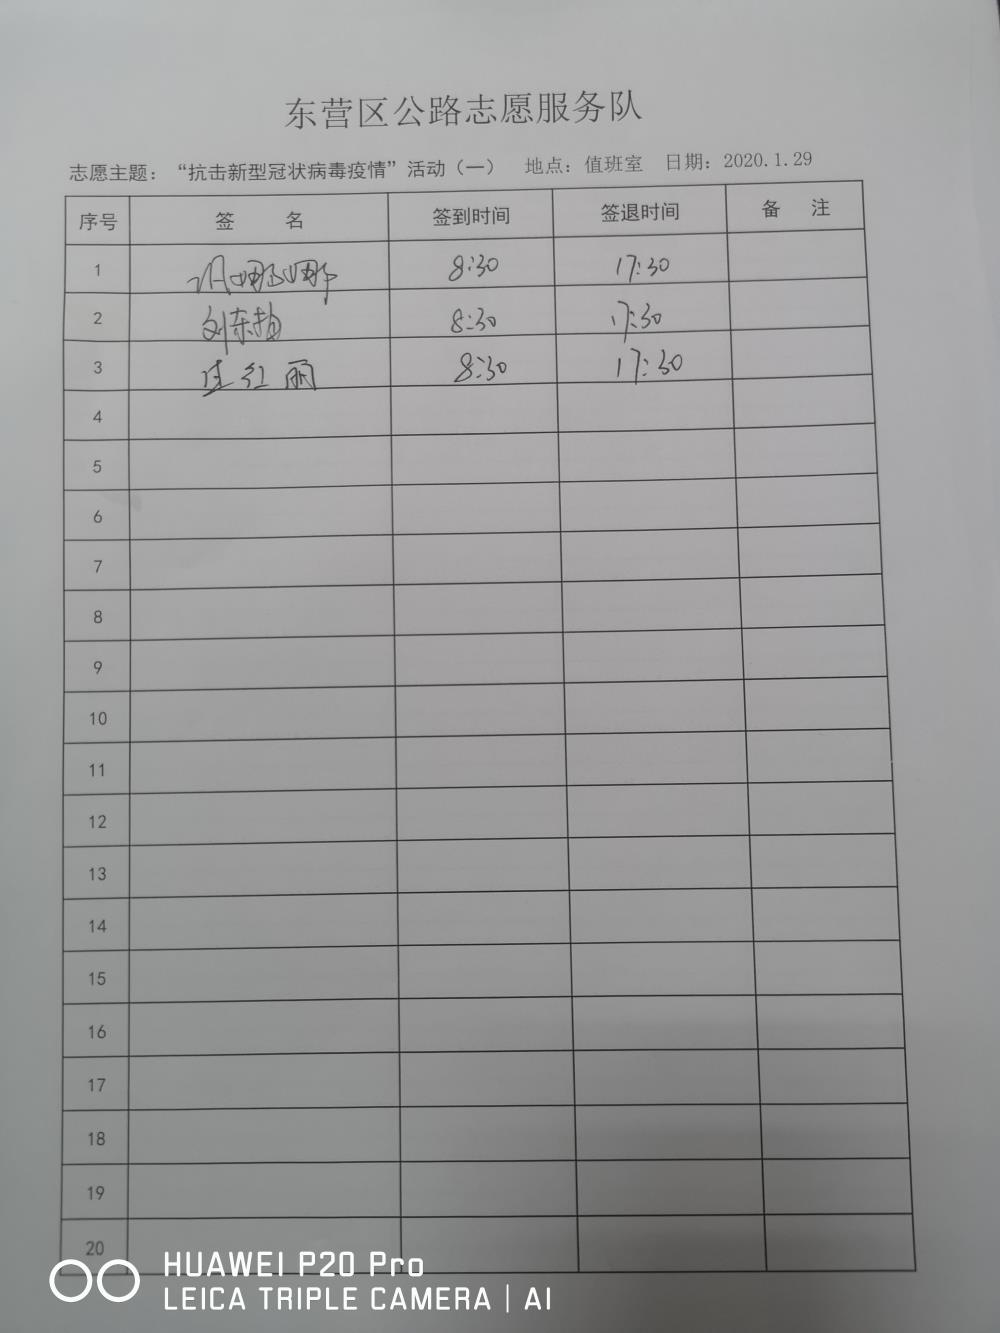 东营区公路志愿服务队
志愿主题：“抗击新型冠状病毒疫情”活动（一） 地点：值班室 日期：2020.1.29
序号 签 名 签到时间 签退时间 备 注
1 娜娜 8:30 17:30
2 刘东 8:30 17:30
3 红丽 8:30 17:30
4
5
6
7
8
9
10
11
12
13
14
15
16
17
18
19
20
HUAWEI P20 Pro
LEICA TRIPLE CAMERA | AI